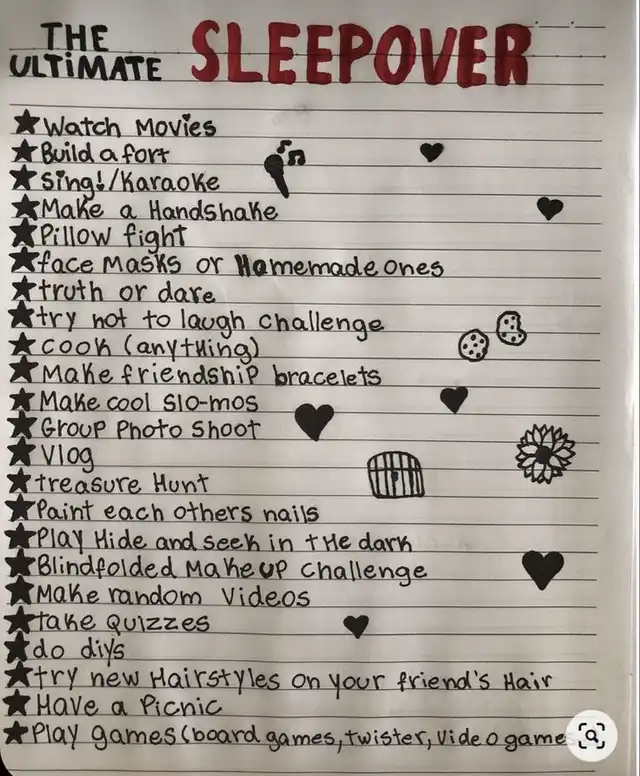 THE
ULTiMATE SLEEPOVER
Watch Movies
Build a fort
Sing!/Karaoke
Make a Handshake
Pillow fight
face Masks or Homemade ones
truth or dare
try not to laugh challenge
cook (anything)
Make friendship bracelets
Make cool slo-mos
Group Photo Shoot
Vlog
treasure Hunt
Paint each others nails
Play Hide and seek in the dark
Blindfolded Makeup challenge
Make random Videos
take Quizzes
do diys
try new Hairstyles on your friend's Hair
Have a Picnic
Play games (board games, twister, Video game